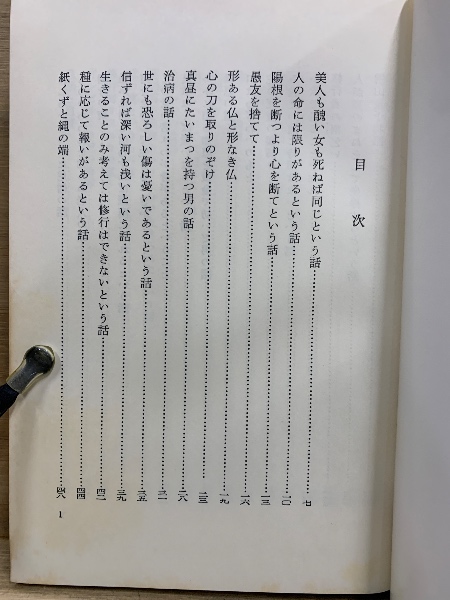 目次
美人も醜い女も死ねば同じという話……七
人の命には限りがあるという話……一〇
陽根を断つより心を断てという話……一三
愚友を捨てて……一六
形ある仏と形なき仏……一九
心の刀を取りのぞけ……二三
真昼にたいまつを持つ男の話……二八
治病の話……三一
世にも恐ろしい傷は憂いであるという話……三五
信ずれば深い河も浅いという話……三九
生きることのみ考えては修行はできないという話……四二
種に応じて報いがあるという話……四四
紙くずと縄の端……四八
1